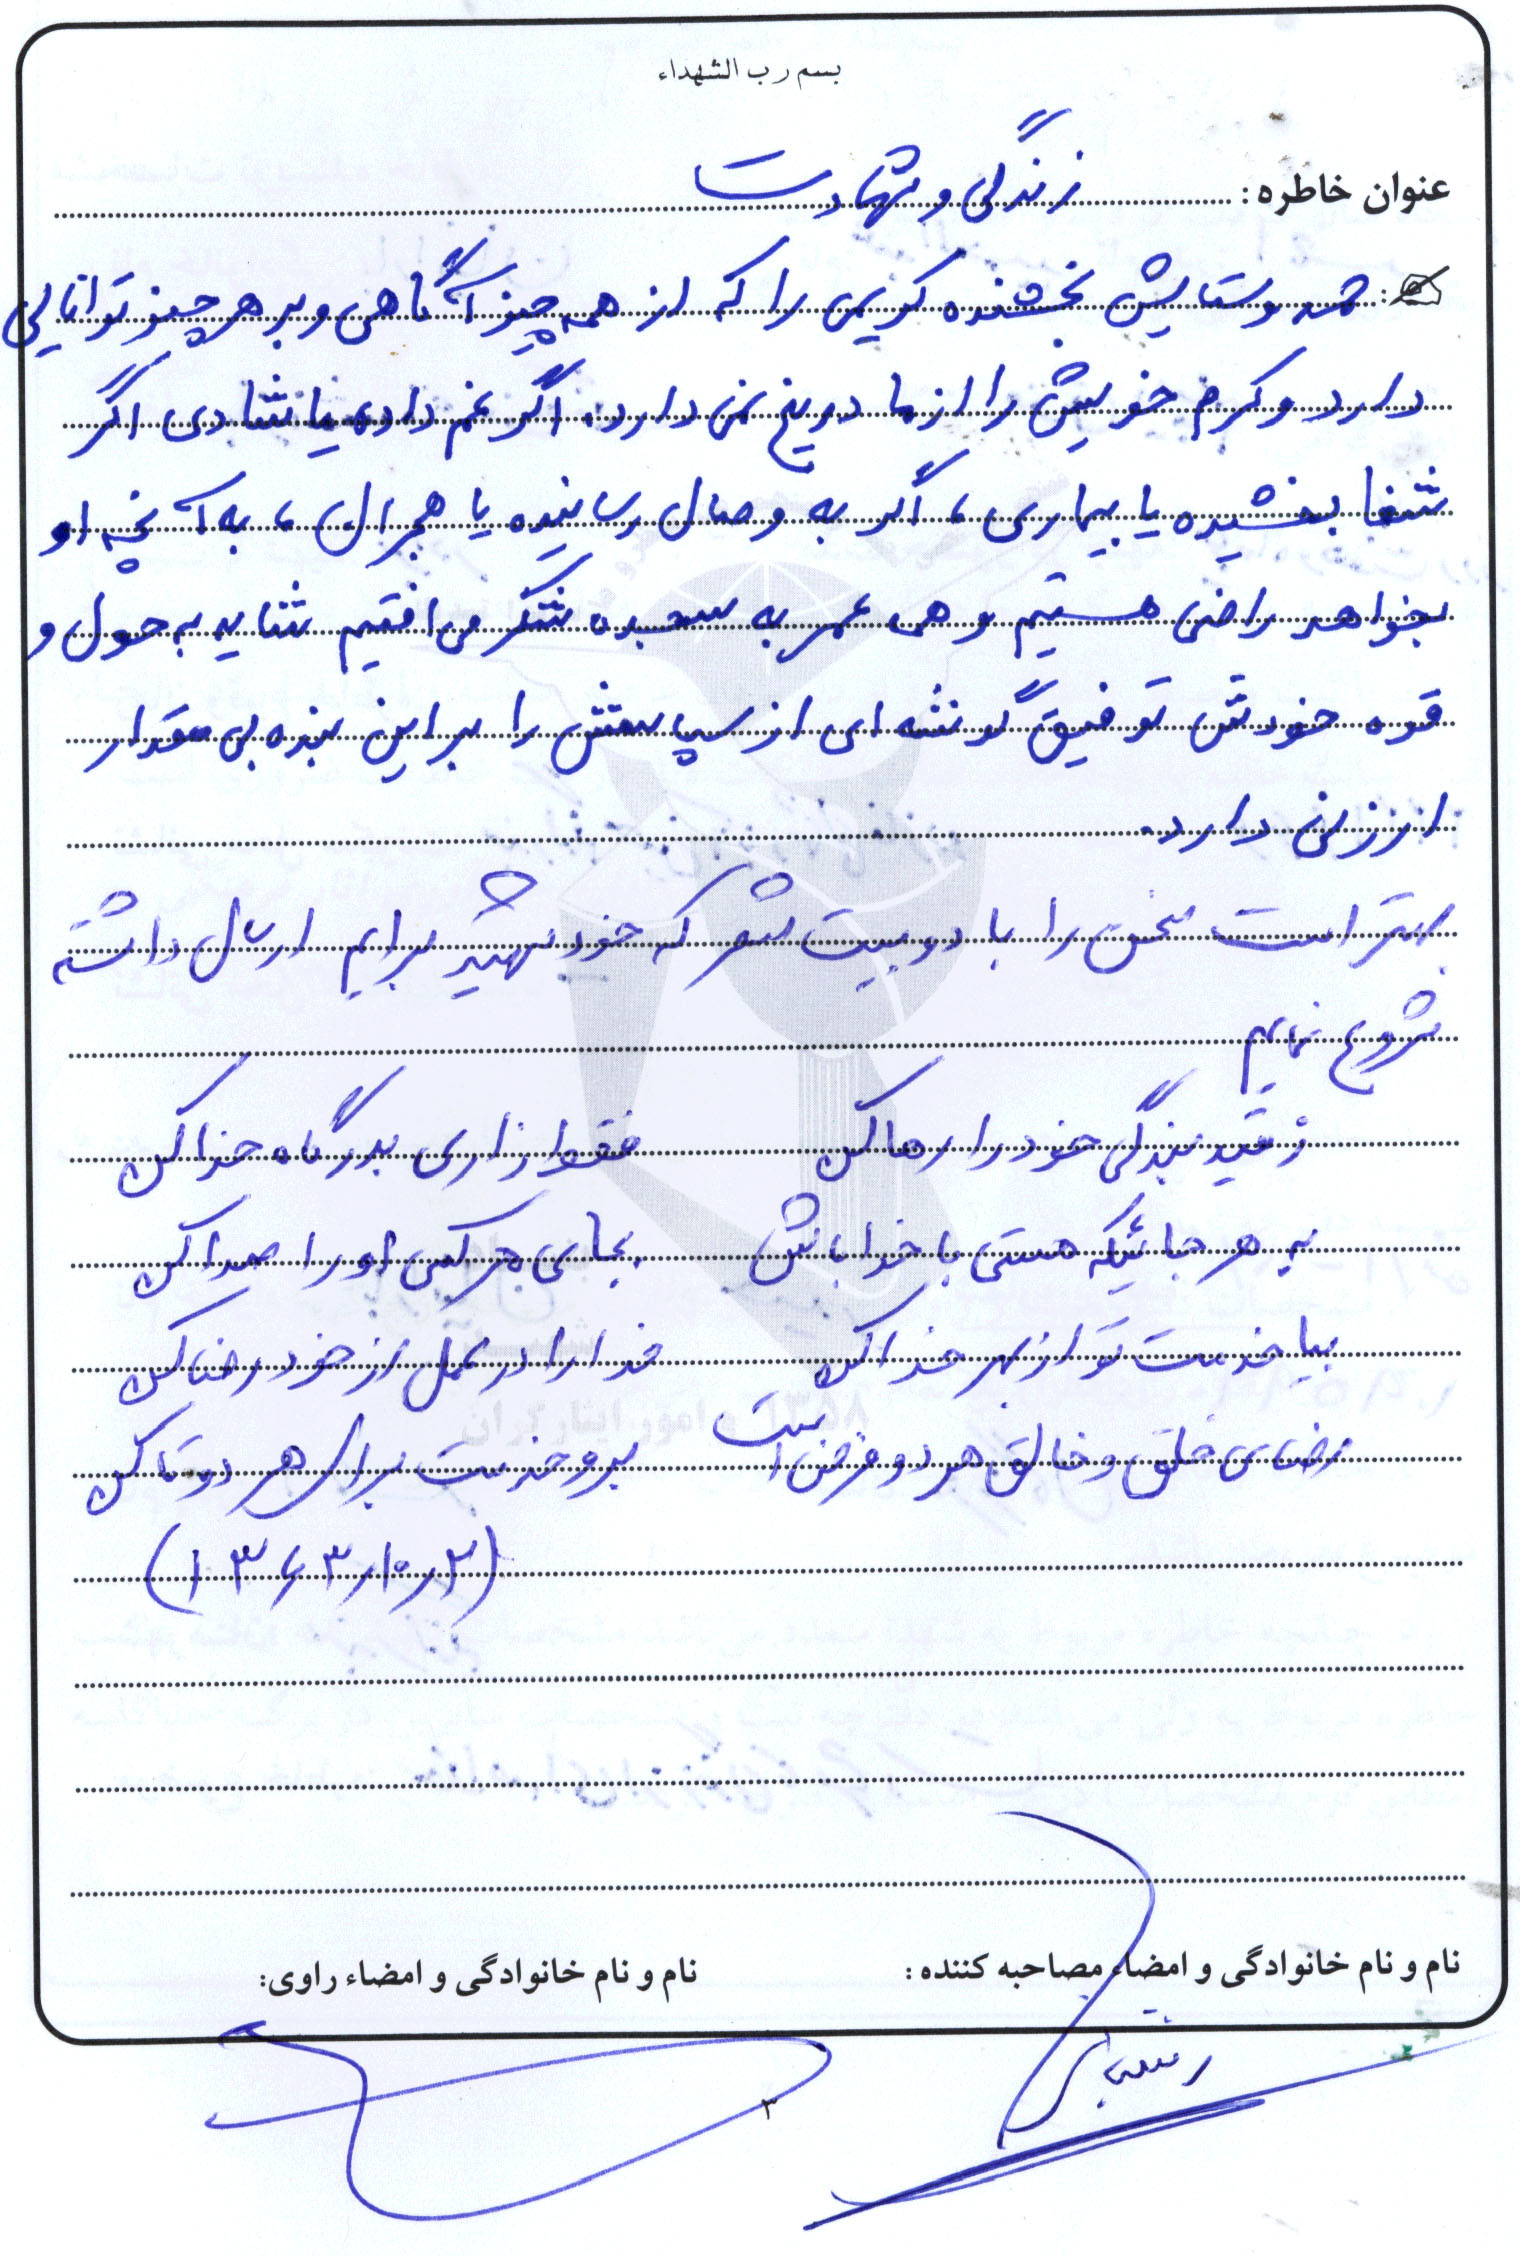 بسم رب الشهداء
عنوان خاطره: زندگی و شهادت
حمد و ستایش بخشنده کریمی را که از همه چیز آگاهی و بر هر چیز توانایی
دارد و کرم خویش را از ما دریغ نمی دارد. اگر غم داده یا شادی اگر
شفا بخشیده یا بیماری، اگر به وصال رسانیده یا هجران، به آنچه او
بخواهد راضی هستیم و همی عمر به سجده شکر می افتیم شاید به حول و
قوه خودش توفیق گوشه ای از سپاسش را بر این بنده بی مقدار
ارزانی دارد.
بهتر است سخن را با دو بیت شعر که خود شهید برایم ارسال داشته
شروع نمایم
ز قید بندگی خود را رها کن فقط زاری بدرگاه خدا کن
به هر جائیکه هستی با خدا باش بجای هر کس او را صدا کن
بیا خدمت تو از بهر خدا کن خدا را در عمل از خود رضا کن
رضای خلق و خالق هر دو فرض است برو خدمت برای هر دو تا کن
(۱۳۶۳/۱۰/۲)
نام و نام خانوادگی و امضاء مصاحبه کننده: نام و نام خانوادگی و امضاء راوی:
۳